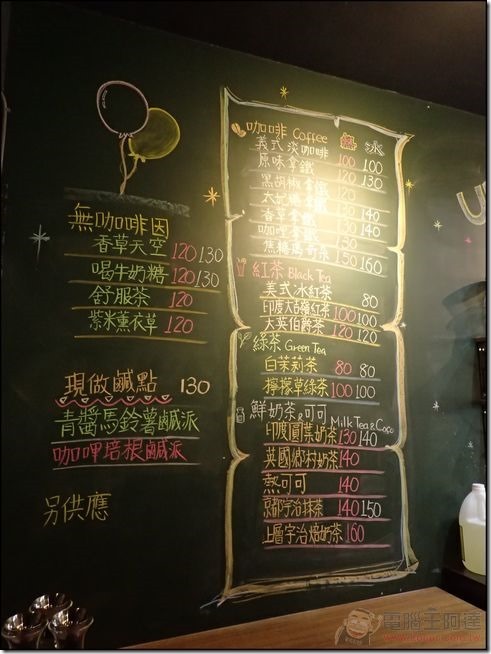 無咖啡因
香草天空 120 130
喝牛奶糖 120 130
舒服茶 120
紫米薰衣草 120
現做鹹點 130
青醬馬鈴薯鹹派
咖哩培根鹹派
另供應
咖啡 Coffee 熱 冰
義式淡咖啡 100 100
原味拿鐵 120 130
黑胡椒拿鐵 120
太妃糖拿鐵 130 140
香草拿鐵 130 140
咖哩拿鐵 130
焦糖瑪奇朵 150 160
紅茶 Black Tea
美式冰紅茶 80
印度大吉嶺紅茶 100 100
大英伯爵茶 120 120
綠茶 Green Tea
白茉莉茶 80 80
檸檬草綠茶 100 100
鮮奶茶&可可 Milk Tea & Coco
印度圓葉奶茶 130 140
英國鄉村奶茶 140
熱可可 140
京都宇治抹茶 140 150
上層宇治焙奶茶 160
電腦王阿達